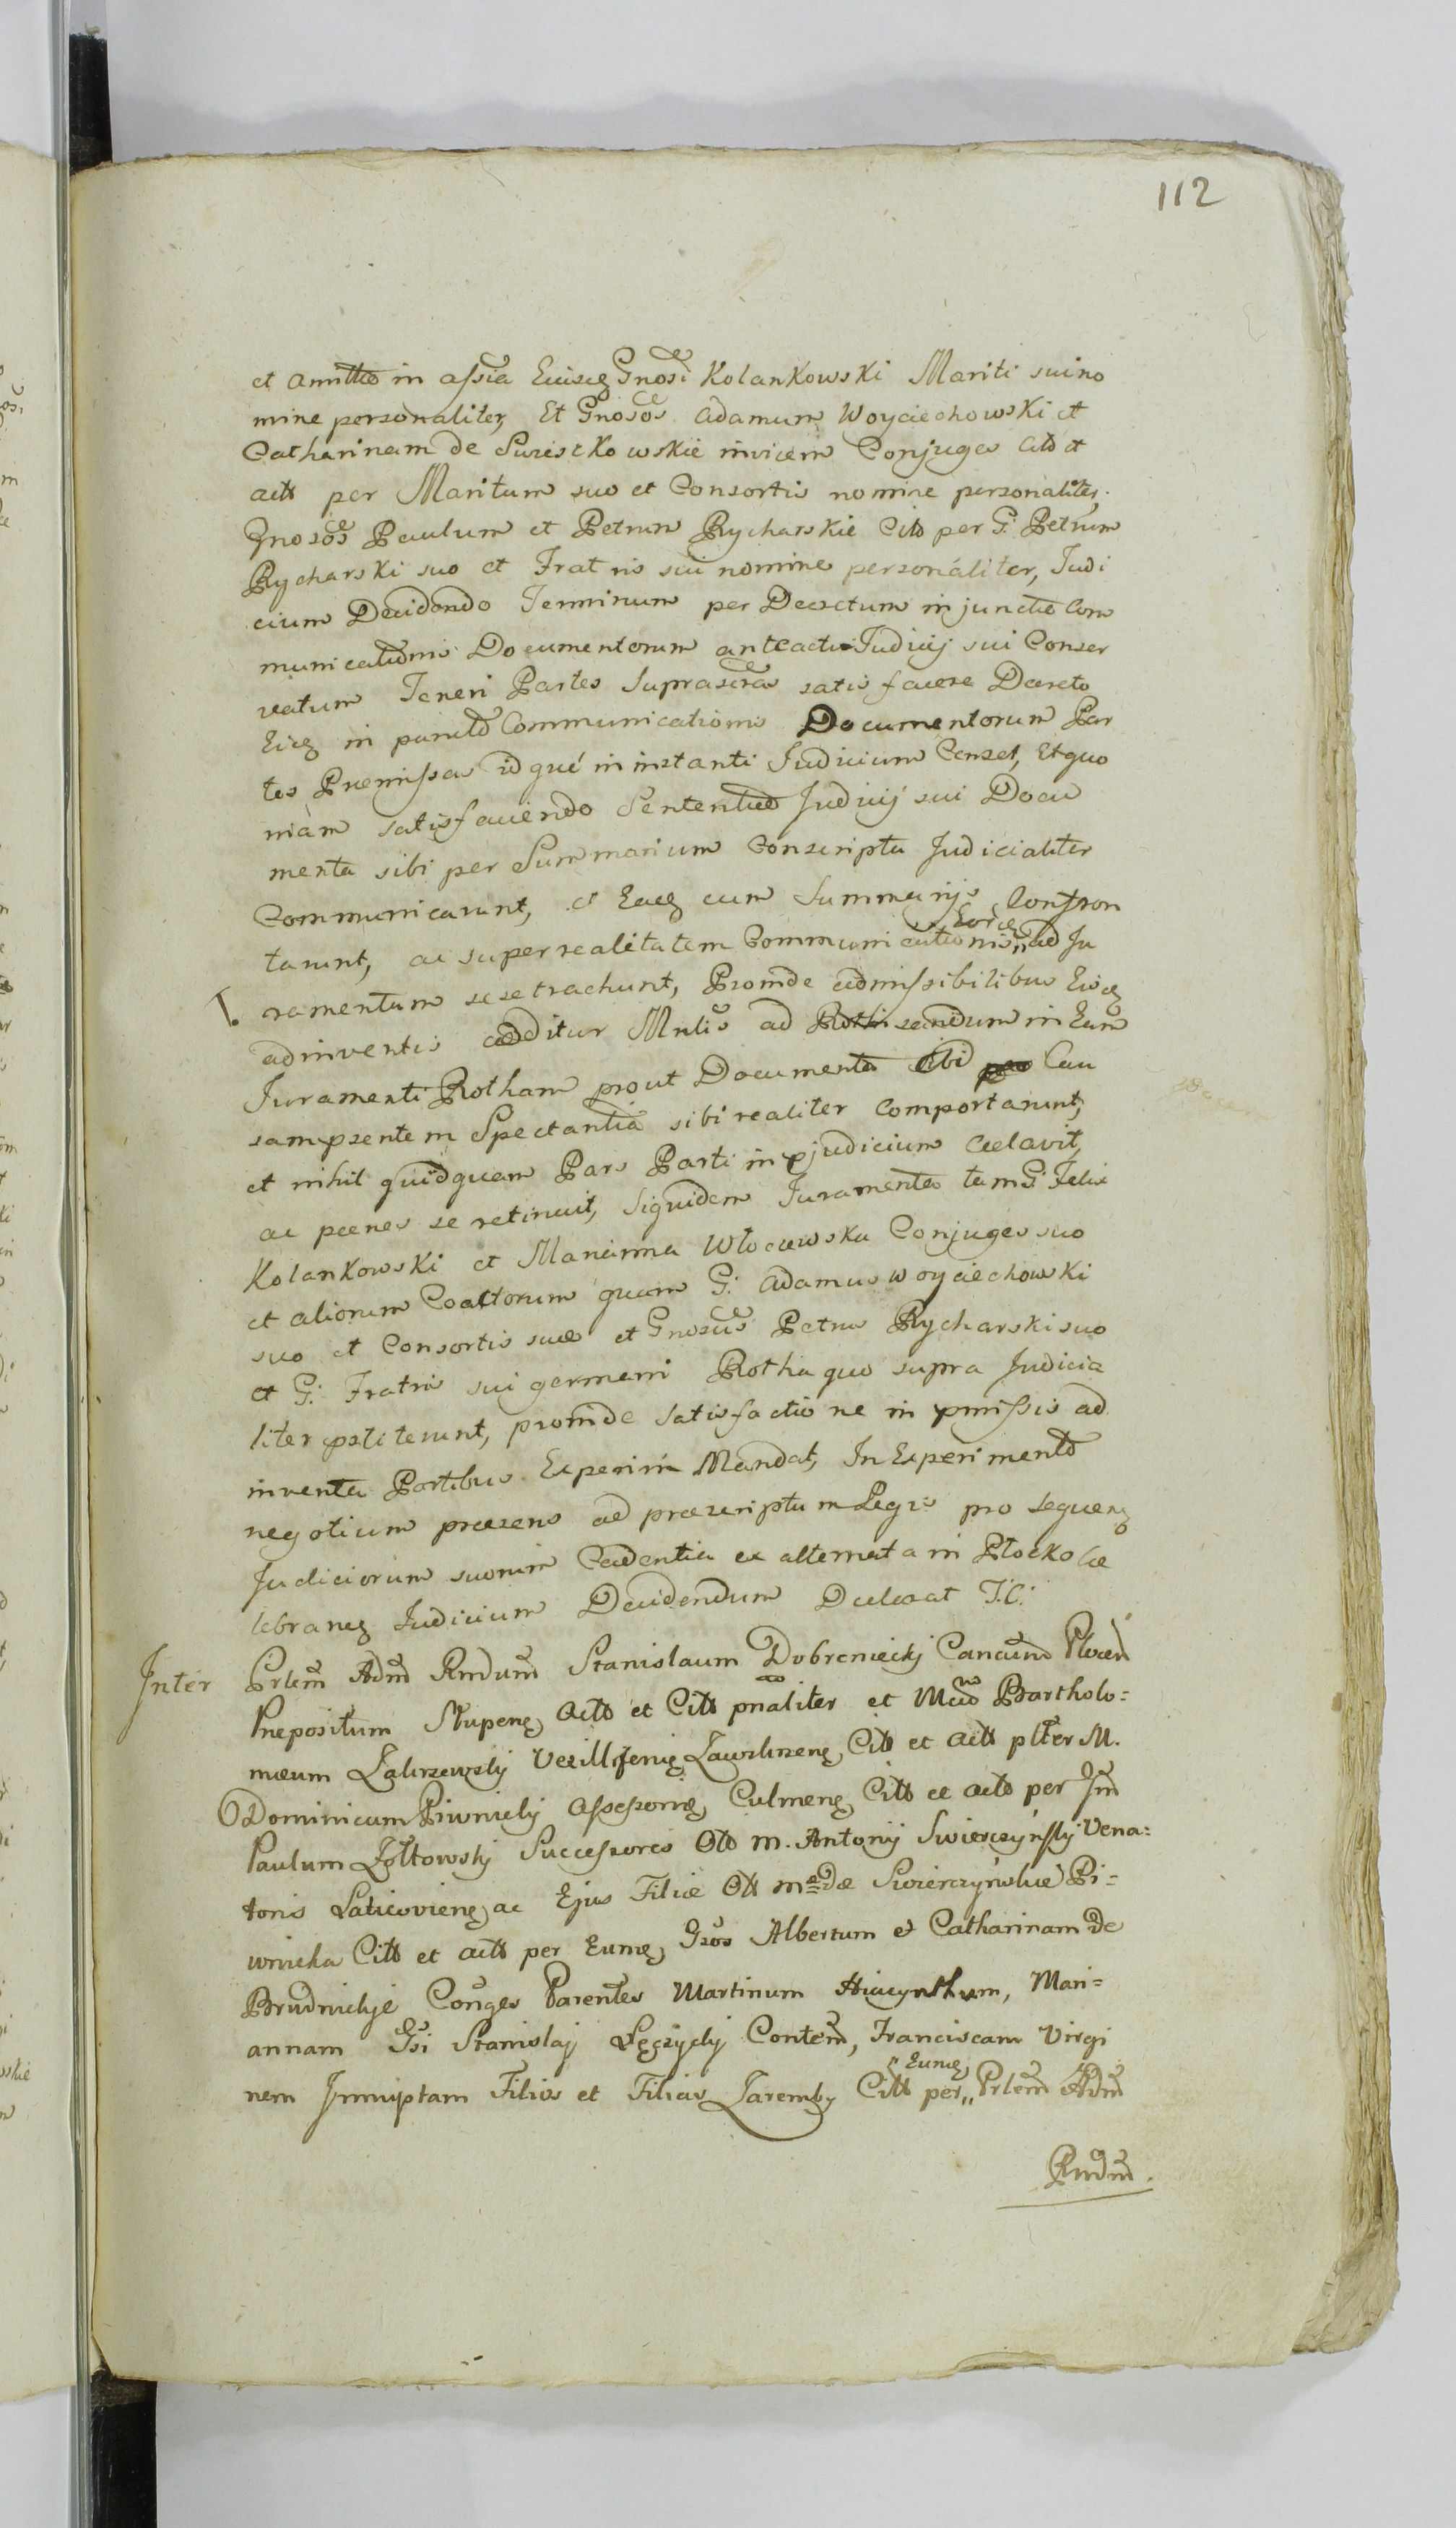 112
et Amitto in assia Eiusq Gnosi Kolankowski Mariti sui no
mine personaliter, Et Gnosos Adamum Woyciechowski et
Catharinam de Swiesckowskie invicem Conjuges Cito et
actt per Maritum suo et Consortis nomine personaliter.
Gnosos Paulum et Petrum Rycharskie Citt per G: Petrum
Rycharski suo et Fratris sui nomine personaliter, Judi
cium Decidendo Terminum per Decretum injunctae Com
municationis Documentorum anteacti Judicij sui Conser
vatum Teneri Partes Suprascras satis facere Decreto
Eidq in puncto Communicationis Documentorum Par
tes Praemissas id que in instanti Judicium Censet, Et quo
niam satisfaciendo Sententiae Judicij sui Docu
menta sibi per Summarium Conscripta Judicialiter
Communicarunt, et Eadq cum Summarijs Confron
tarunt, ac super realitatem Communicationis „Eorq„ ad Ju
ramentum sese trachunt, Proinde admissibilibus Eisdq
adinventis additur Mnlis ad Rothisandum in Eum
Juramenti Rotham prout Documenta sibi Cau
sam psentem Spectantia sibi realiter Comportarunt,
et nihil quidquam Pars Parti in pjudicium Celavit,
ac paenes se retinuit, Siquidem Juramenta tam G: Felix
Kolankowski et Marianna Włocewska Conjuges suo
et aliorum Coactorum quam G: Adamus Woyciechowski
suo et Consortis suae et Gnosus Petrus Rycharski suo
et G: Fratris sui germani Rotha quo supra Judicia
liter pstiterunt, proinde Satisfactione in pmissis ad
inventa Partibus Experiri Mandat, In Experimento
negotium praesens ad praescriptum Legis pro sequenq
Judiciorum suorum Cadentia ex alternata in Płocko ce
lebranq Judicium Decidendum Declarat T: C:
Inter Prlem Adm Rndum Stanislaum Dobrenieckj Cancum Plocen
Praepositum Słupenq Actt et Citt pnaliter et Mcum Bartholo=
maeum Zakrzewskj Vexillferuq Zawskrzenq Citt et Actt plter M.
Dominicum Piwnickj Assessorq Culmenq Citt et actt per Jm
Paulum Zółtowskj Successores Olt M. Antonij Swierczyńskj Vena=
toris Laticovienq ac Ejus Filiae Olt Mgdae Swierczyńskae Pi=
wnicka Citt et actt per Eumq Gsos Albertum et Catharinam de
Brudnickje Conges Parentes Martinum Hiacynthum, Mari=
annam Gsi Stanislaj Łęczyckj Contem, Franciscam Virgi
nem Innuptam Filios et Filias Zaremby Citt per „Eumq„ Prlem Adm
Rndm.